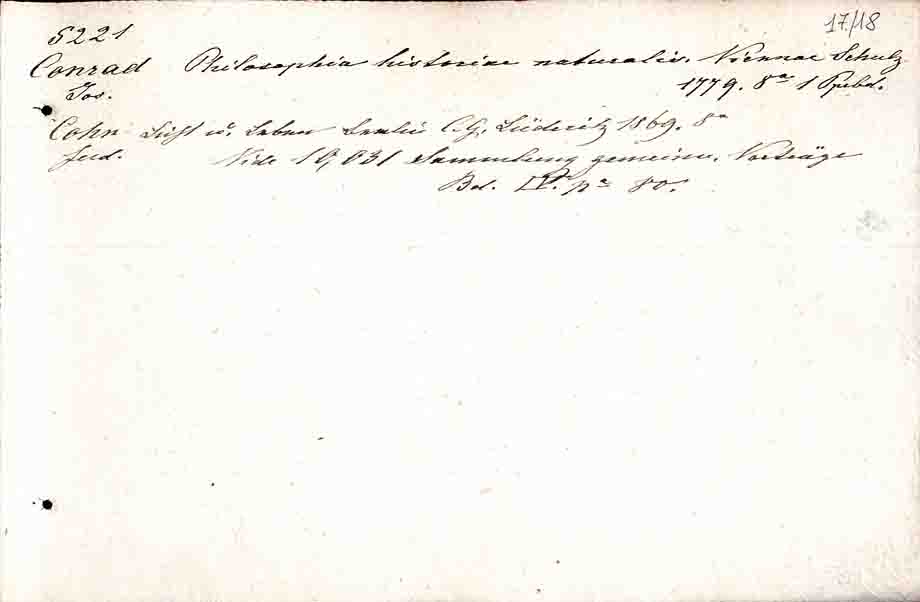 17/18
5221
Conrad Philosophia historiae naturalis. Viennae Schulz
Jos. 1779. 8° 1 Ppbd.
Cohn Licht u. Leben Berlin C. G. Lüderitz 1869. 8°
Ferd. Vide 19,031 Sammlung gemeinv. Vorträge
Bd. IV. p° 80.